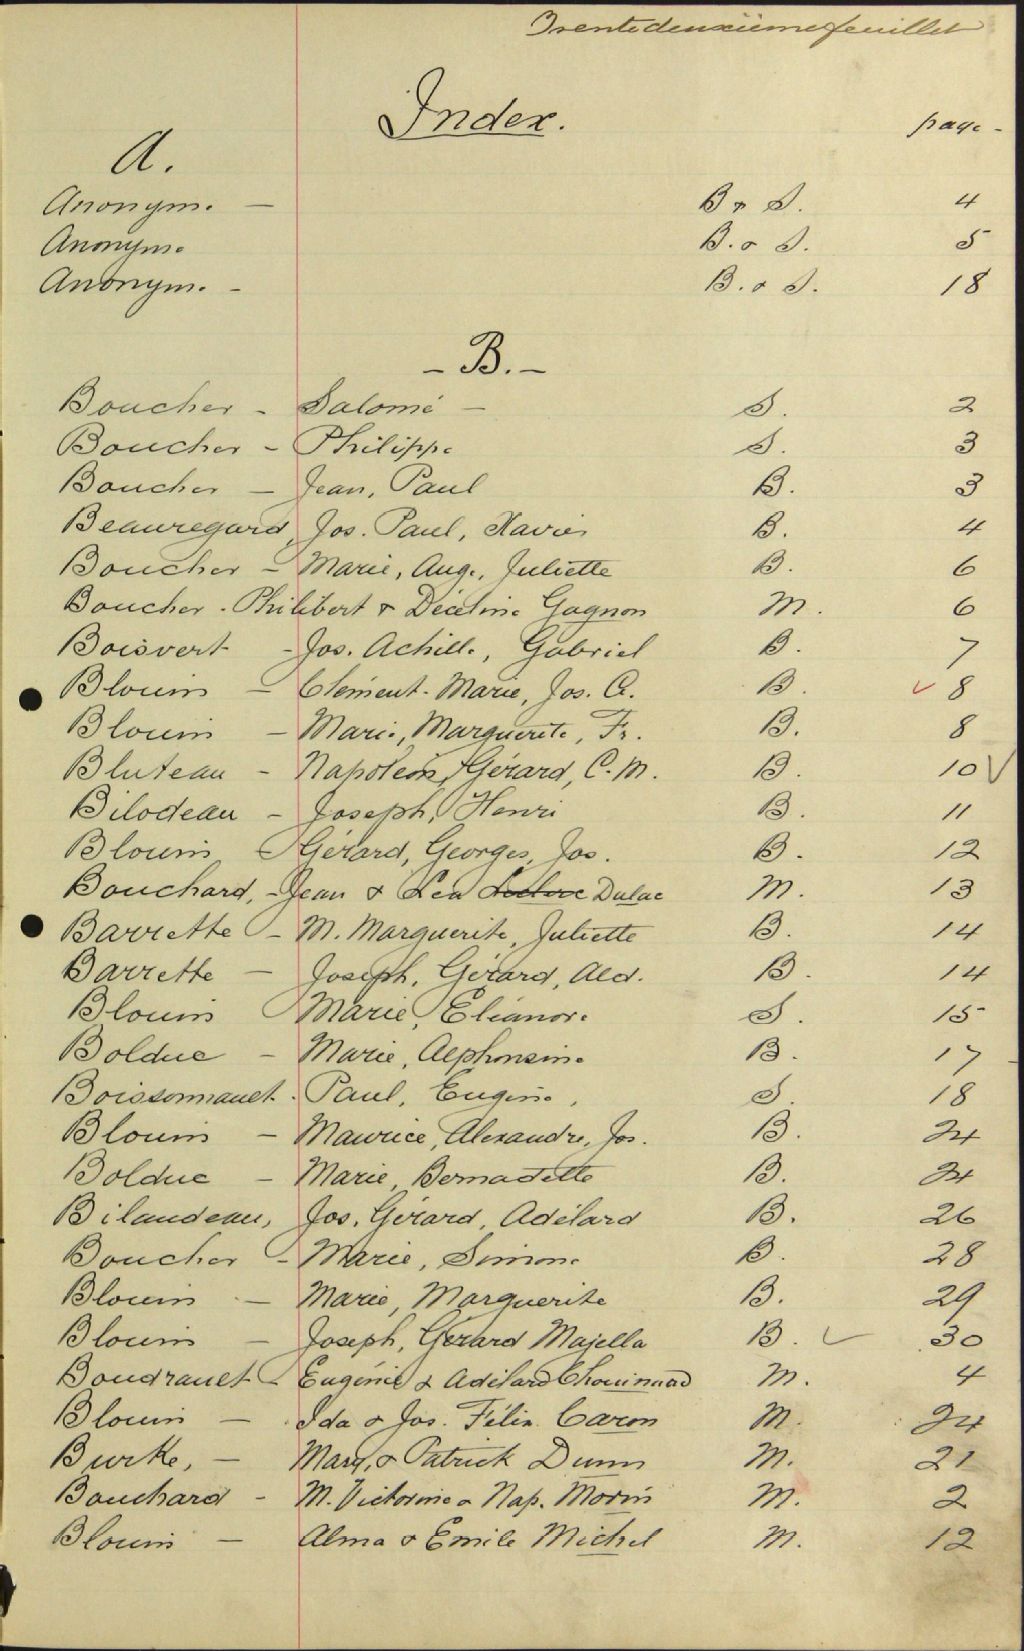 Trente deuxième feuillet
Index.
page -
A.
Anonym. — B & S. 4
Anonym. B. & S. 5
Anonym. - B. & S. 18
- B. -
Boucher - Salomé — S. 2
Boucher - Philippe S. 3
Boucher — Jean, Paul B. 3
Beauregard, Jos. Paul, Xavier B. 4
Boucher - Marie, Aug., Juliette B. 6
Boucher - Philibert & Décéline Gagnon M. 6
Boisvert - Jos. Achille, Gabriel B. 7
Blouin — Clément-Marie, Jos. A. B. ✓ 8
Blouin — Marie, Marguerite, Fr. B. 8
Bluteau - Napoléon, Gérard, C. M. B. 10 V
Bilodeau - Joseph, Henri B. 11
Blouin - Gérard, Georges, Jos. B. 12
Bouchard, - Jean & Léa Leclerc Dulac M. 13
Barrette - M. Marguerite, Juliette B. 14
Barrette — Joseph, Gérard, Ald. B. 14
Blouin Marie, Eléanore S. 15
Bolduc - Marie, Alphonsine B. 17
Boissonnault - Paul, Eugène, S. 18
Blouin — Maurice, Alexandre, Jos. B. 24
Bolduc — Marie, Bernadette B. 24
Bilaudeau, Jos. Gérard, Adélard B. 26
Boucher - Marie, Simone B. 28
Blouin — Marie, Marguerite B. 29
Blouin — Joseph, Gérard Majella B. ✓ 30
Boudrault - Eugénie & Adélard Chouinard M. 4
Blouin — Ida & Jos. Félix Caron M. 24
Burke, — Mary, & Patrick Dunn M. 21
Bouchard - M. Victorine & Nap. Morin M. 2
Blouin — Alma & Emile Michel M. 12